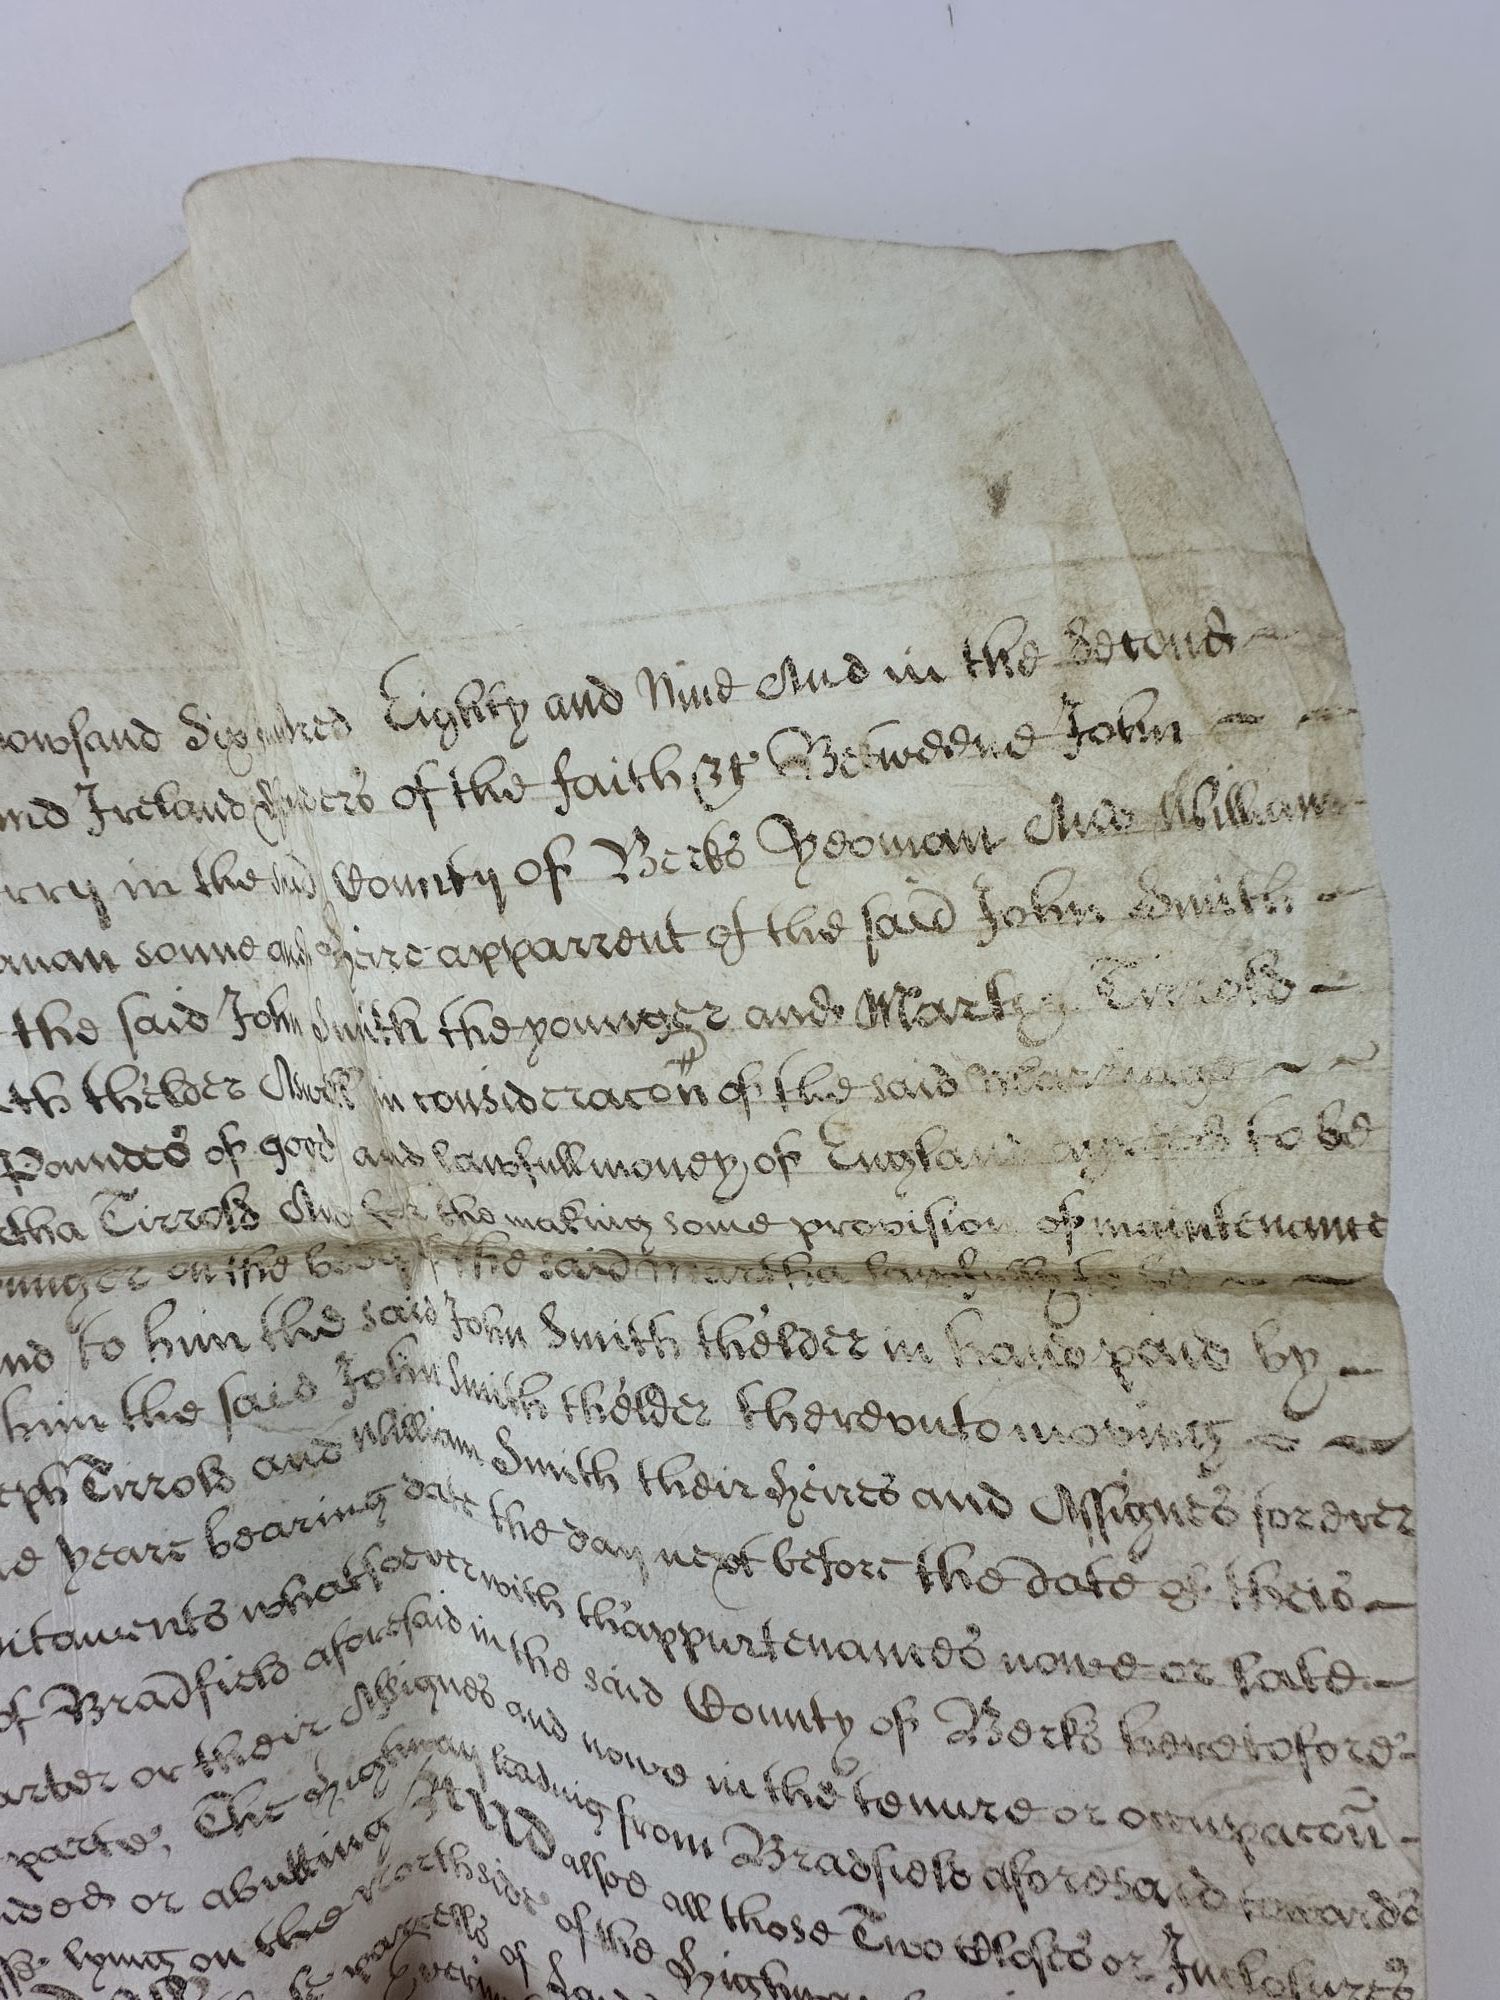 Eighty and Nine And in the Second
and Ireland of the faith &c Betweene John
in the said County of Berks Yeoman And William
sonne and heire apparrent of the said John Smith
the said John Smith the younger and Martha Tirrold
th'elder in consideracon of the said Marriage
Poundes of good and lawfull money of England agreed to be
Tirrold And for the making some provision of maintenance
on the body of the said Martha lawfully to be
and to him the said John Smith th'elder in hand paid by
him the said John Smith th'elder thereunto moving
Tirrold and William Smith their heires and Assignes for ever
yeare bearing date the day next before the date of theis
whatsoever with th'appurtenances nowe or late
of Bradfield aforesaid in the said County of Berks heretofore
or their Assignes and nowe in the tenure or occupacon
parte, The Highway leading from Bradfield aforesaid towards
or abutting And alsoe all those Two Closes or Inclosures
lying on the North side of the